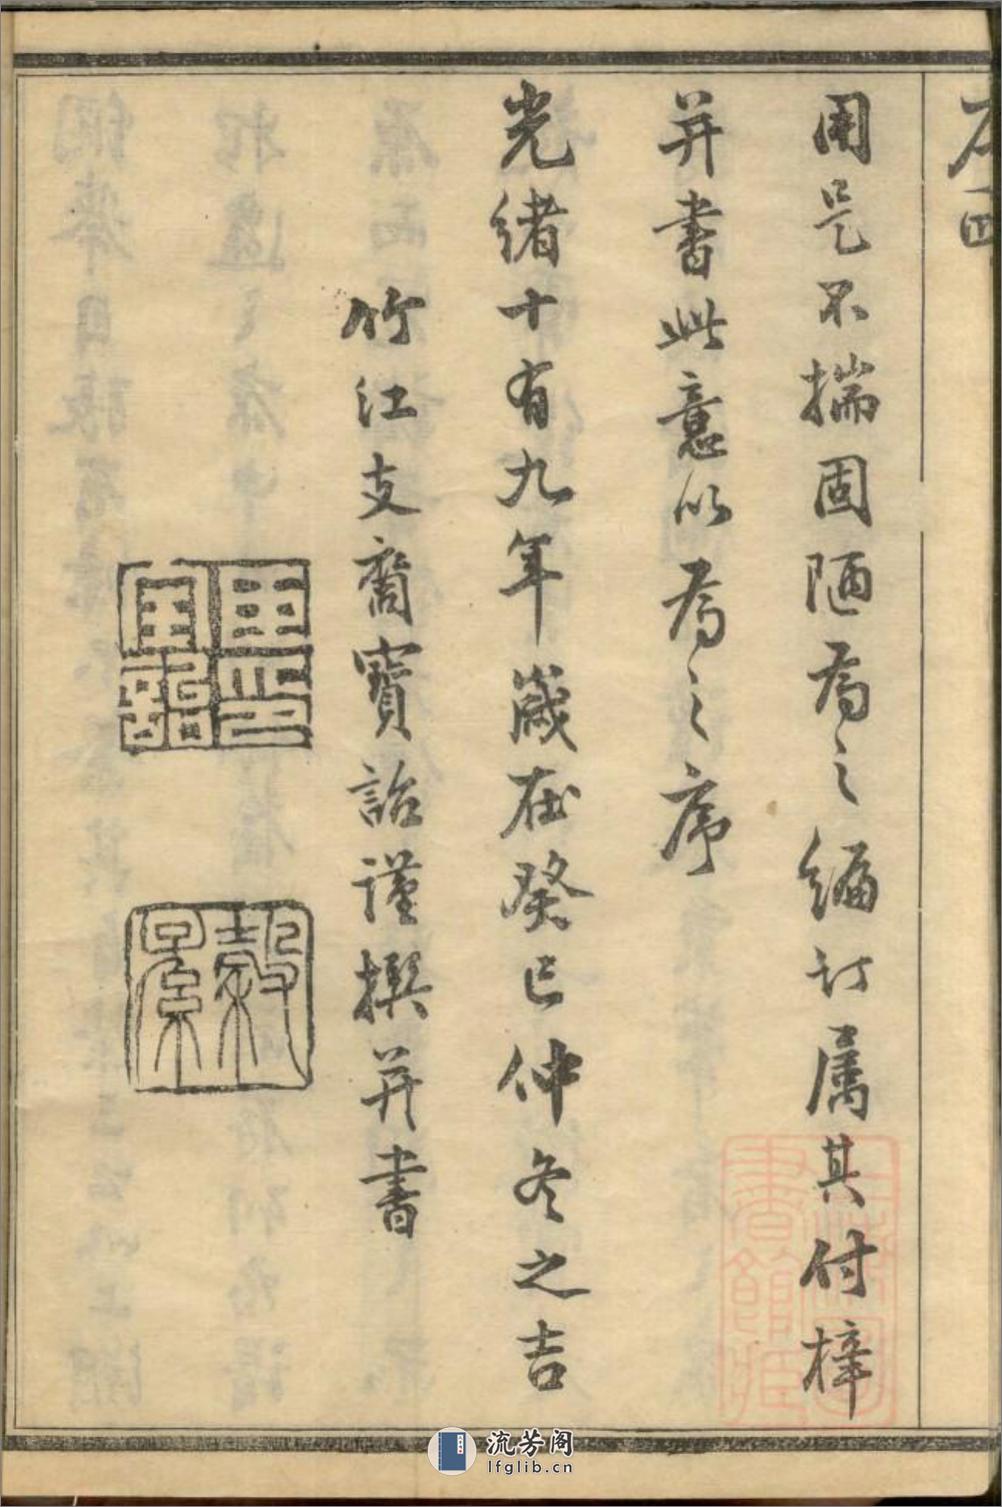 用是不揣固陋為之編訂属其付梓
并書此意以為之序
光緒十有九年歲在癸巳仲冬之吉
竹江支裔寶詒謹撰并書
穀
書館
流芳阁
lfglib.cn